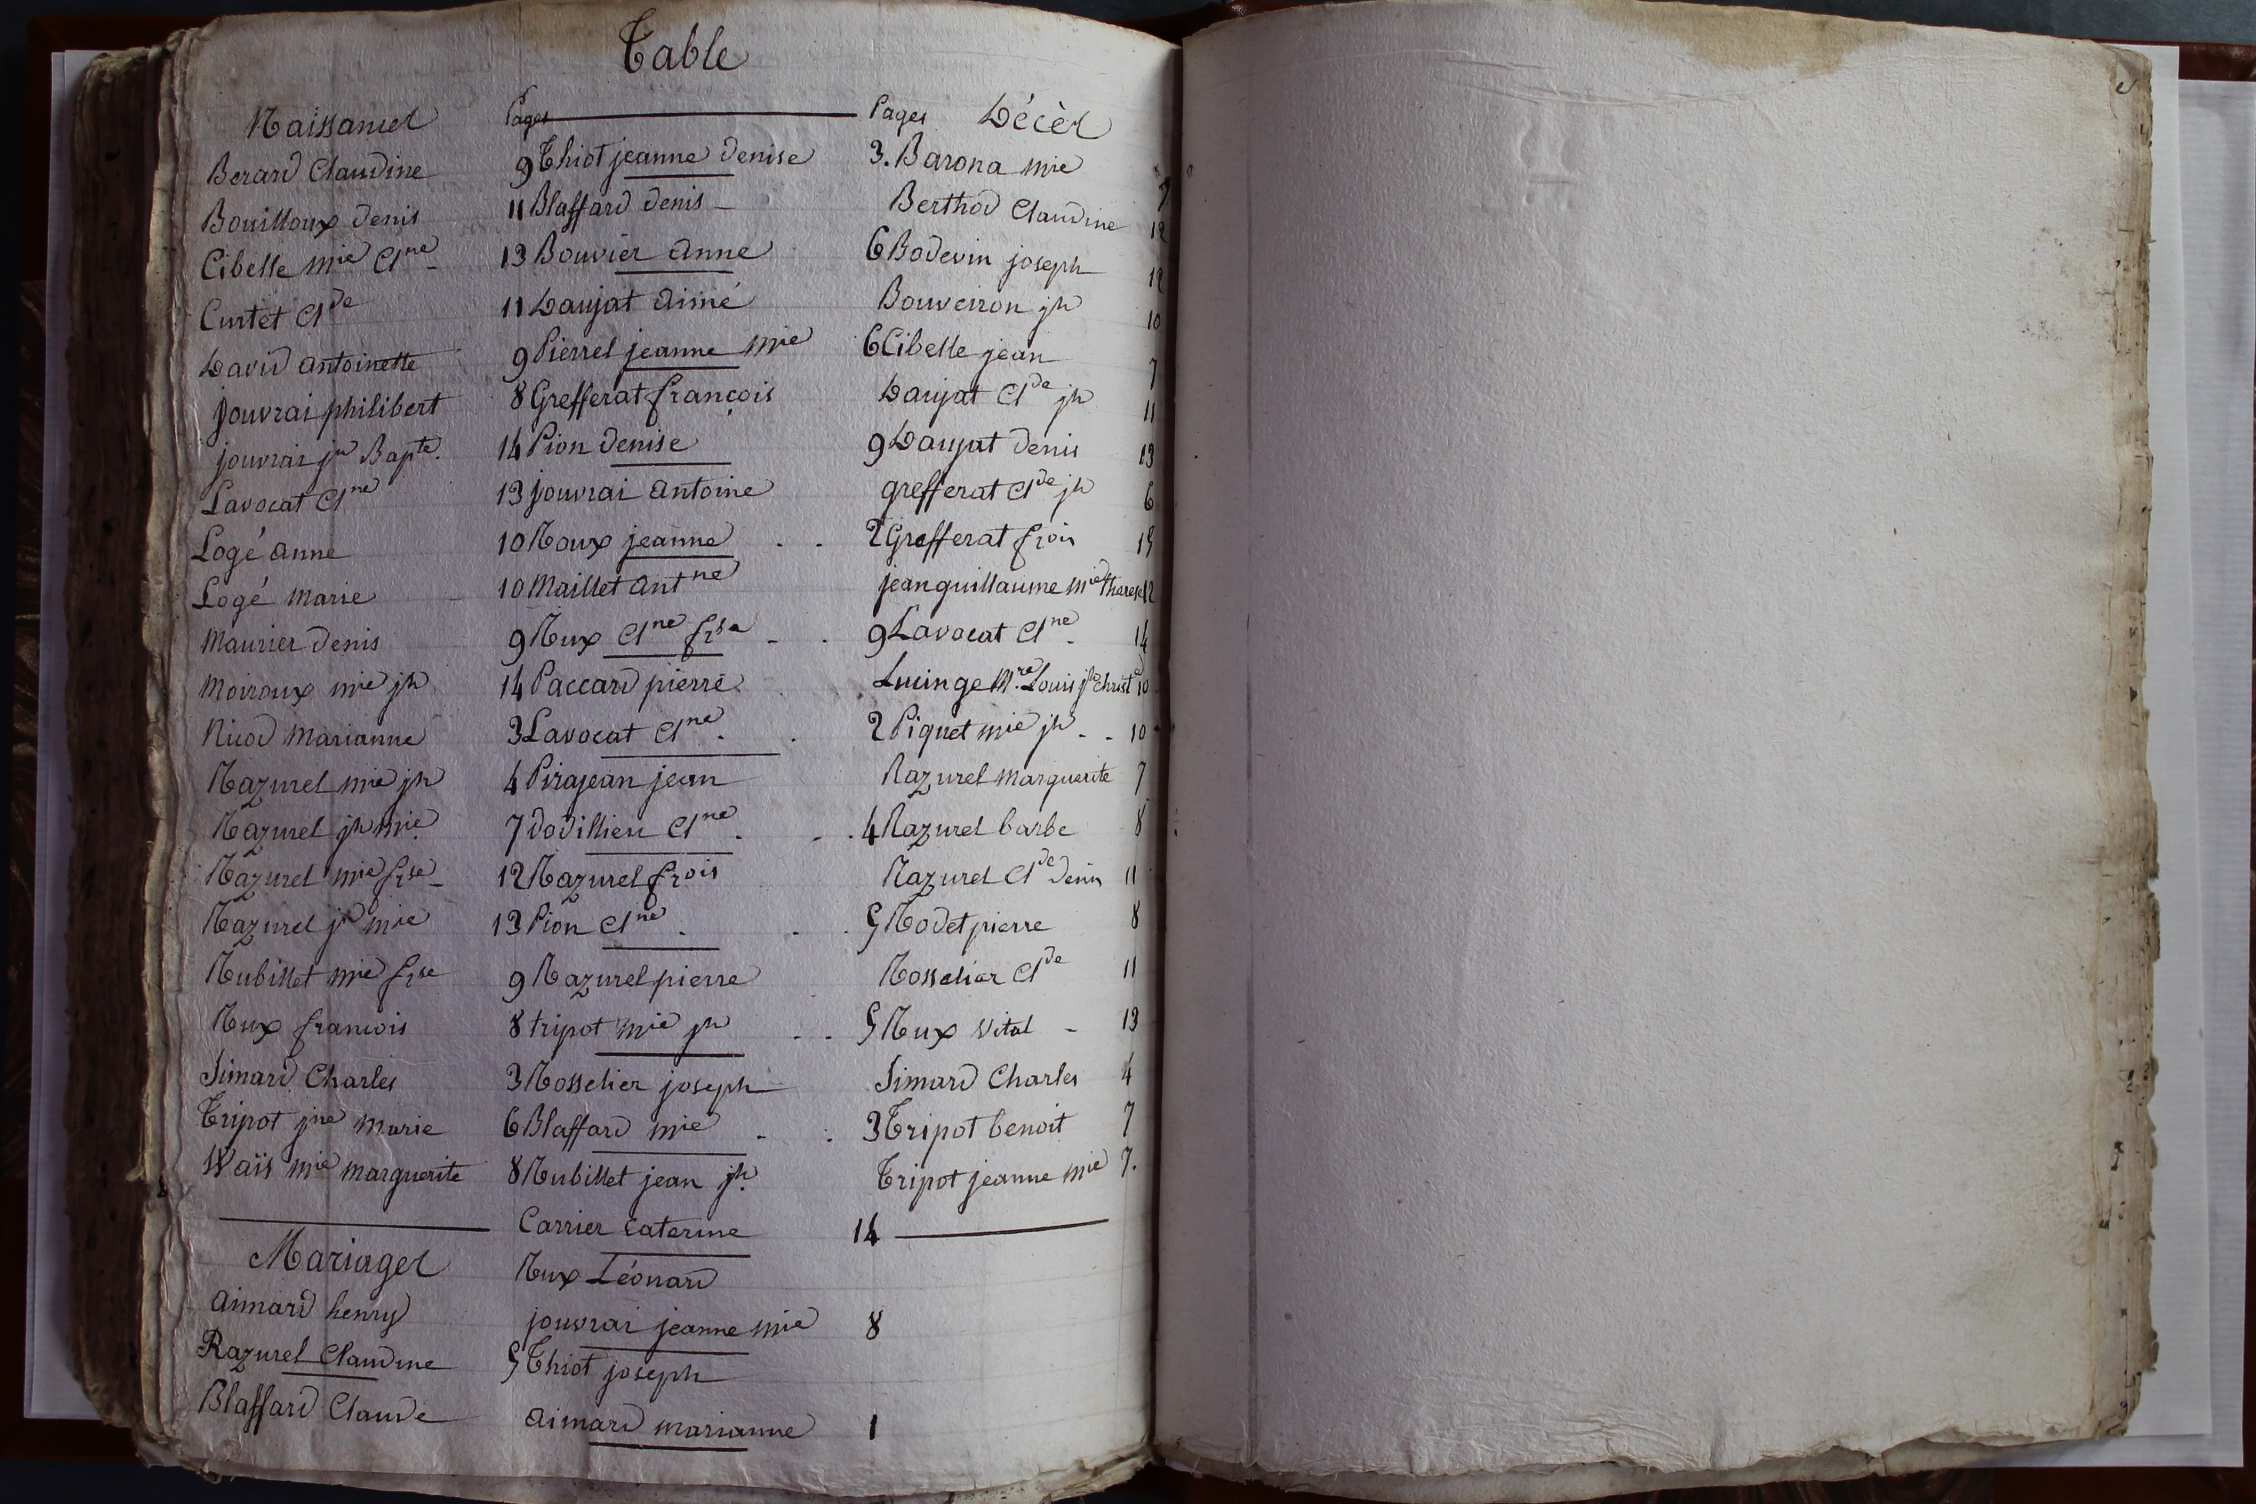 Table
Naissances
Berard Claudine 9
Bouilloux denis 11
Cibelle mie Cne 13
Curtet Cde 11
David antoinette 9
jouvrai philibert 8
jouvrai jn Bapte. 14
Lavocat Cne 13
Logé anne 10
Logé marie 10
Maurier denis 9
Moiroux mie jh 14
Nicod marianne 3
Razurel mie jh 4
Razurel jh mie 7
Razurel mie frse 12
Razurel jh mie 13
Rubillet mie frse 9
Rux francois 8
Simard Charles 3
Tripot jne marie 6
Waïs mie marguerite 8
Mariages
aimard henry
Razurel Claudine 5
Blaffard Claude
Pages
Thiot jeanne denise 3.
Blaffard denis
Bouvier anne 6
Daujat aimé
Pierrel jeanne mie 6
Grefferat françois
Pion denise 9
jouvrai antoine
Roux jeanne 2
Maillet antne
Rux Cne frse 9
Paccard pierre
Lavocat Cne 2
Pirajean jean
vodillieu Cne 4
Razurel frois
Pion Cne 5
Razurel pierre
tripot mie jh 5
Rosselier joseph
Blaffard mie 3
Rubillet jean jh
Carrier caterine 14
Rux Léonard
jouvrai jeanne mie 8
Thiot joseph
aimard marianne 1
Pages Décès
Barona mie 7
Berthod Claudine 12
Bodevin joseph 12
Bouveiron jh 10
Cibelle jean 7
Daujat Cde jh 11
Daujat denis 13
grefferat Cde jh 6
Grefferat frois 15
jeanguillaume mie therese 12
Lavocat Cne 14
Lucinge Mre Louis jh christ 10
Piquet mie jh 10
Razurel marguerite 7
Razurel barbe 8
Razurel Cde denis 11
Rodet pierre 8
Rosselier Cde 11
Rux vital 13
Simard Charles 4
Tripot benoit 7
Tripot jeanne mie 7.